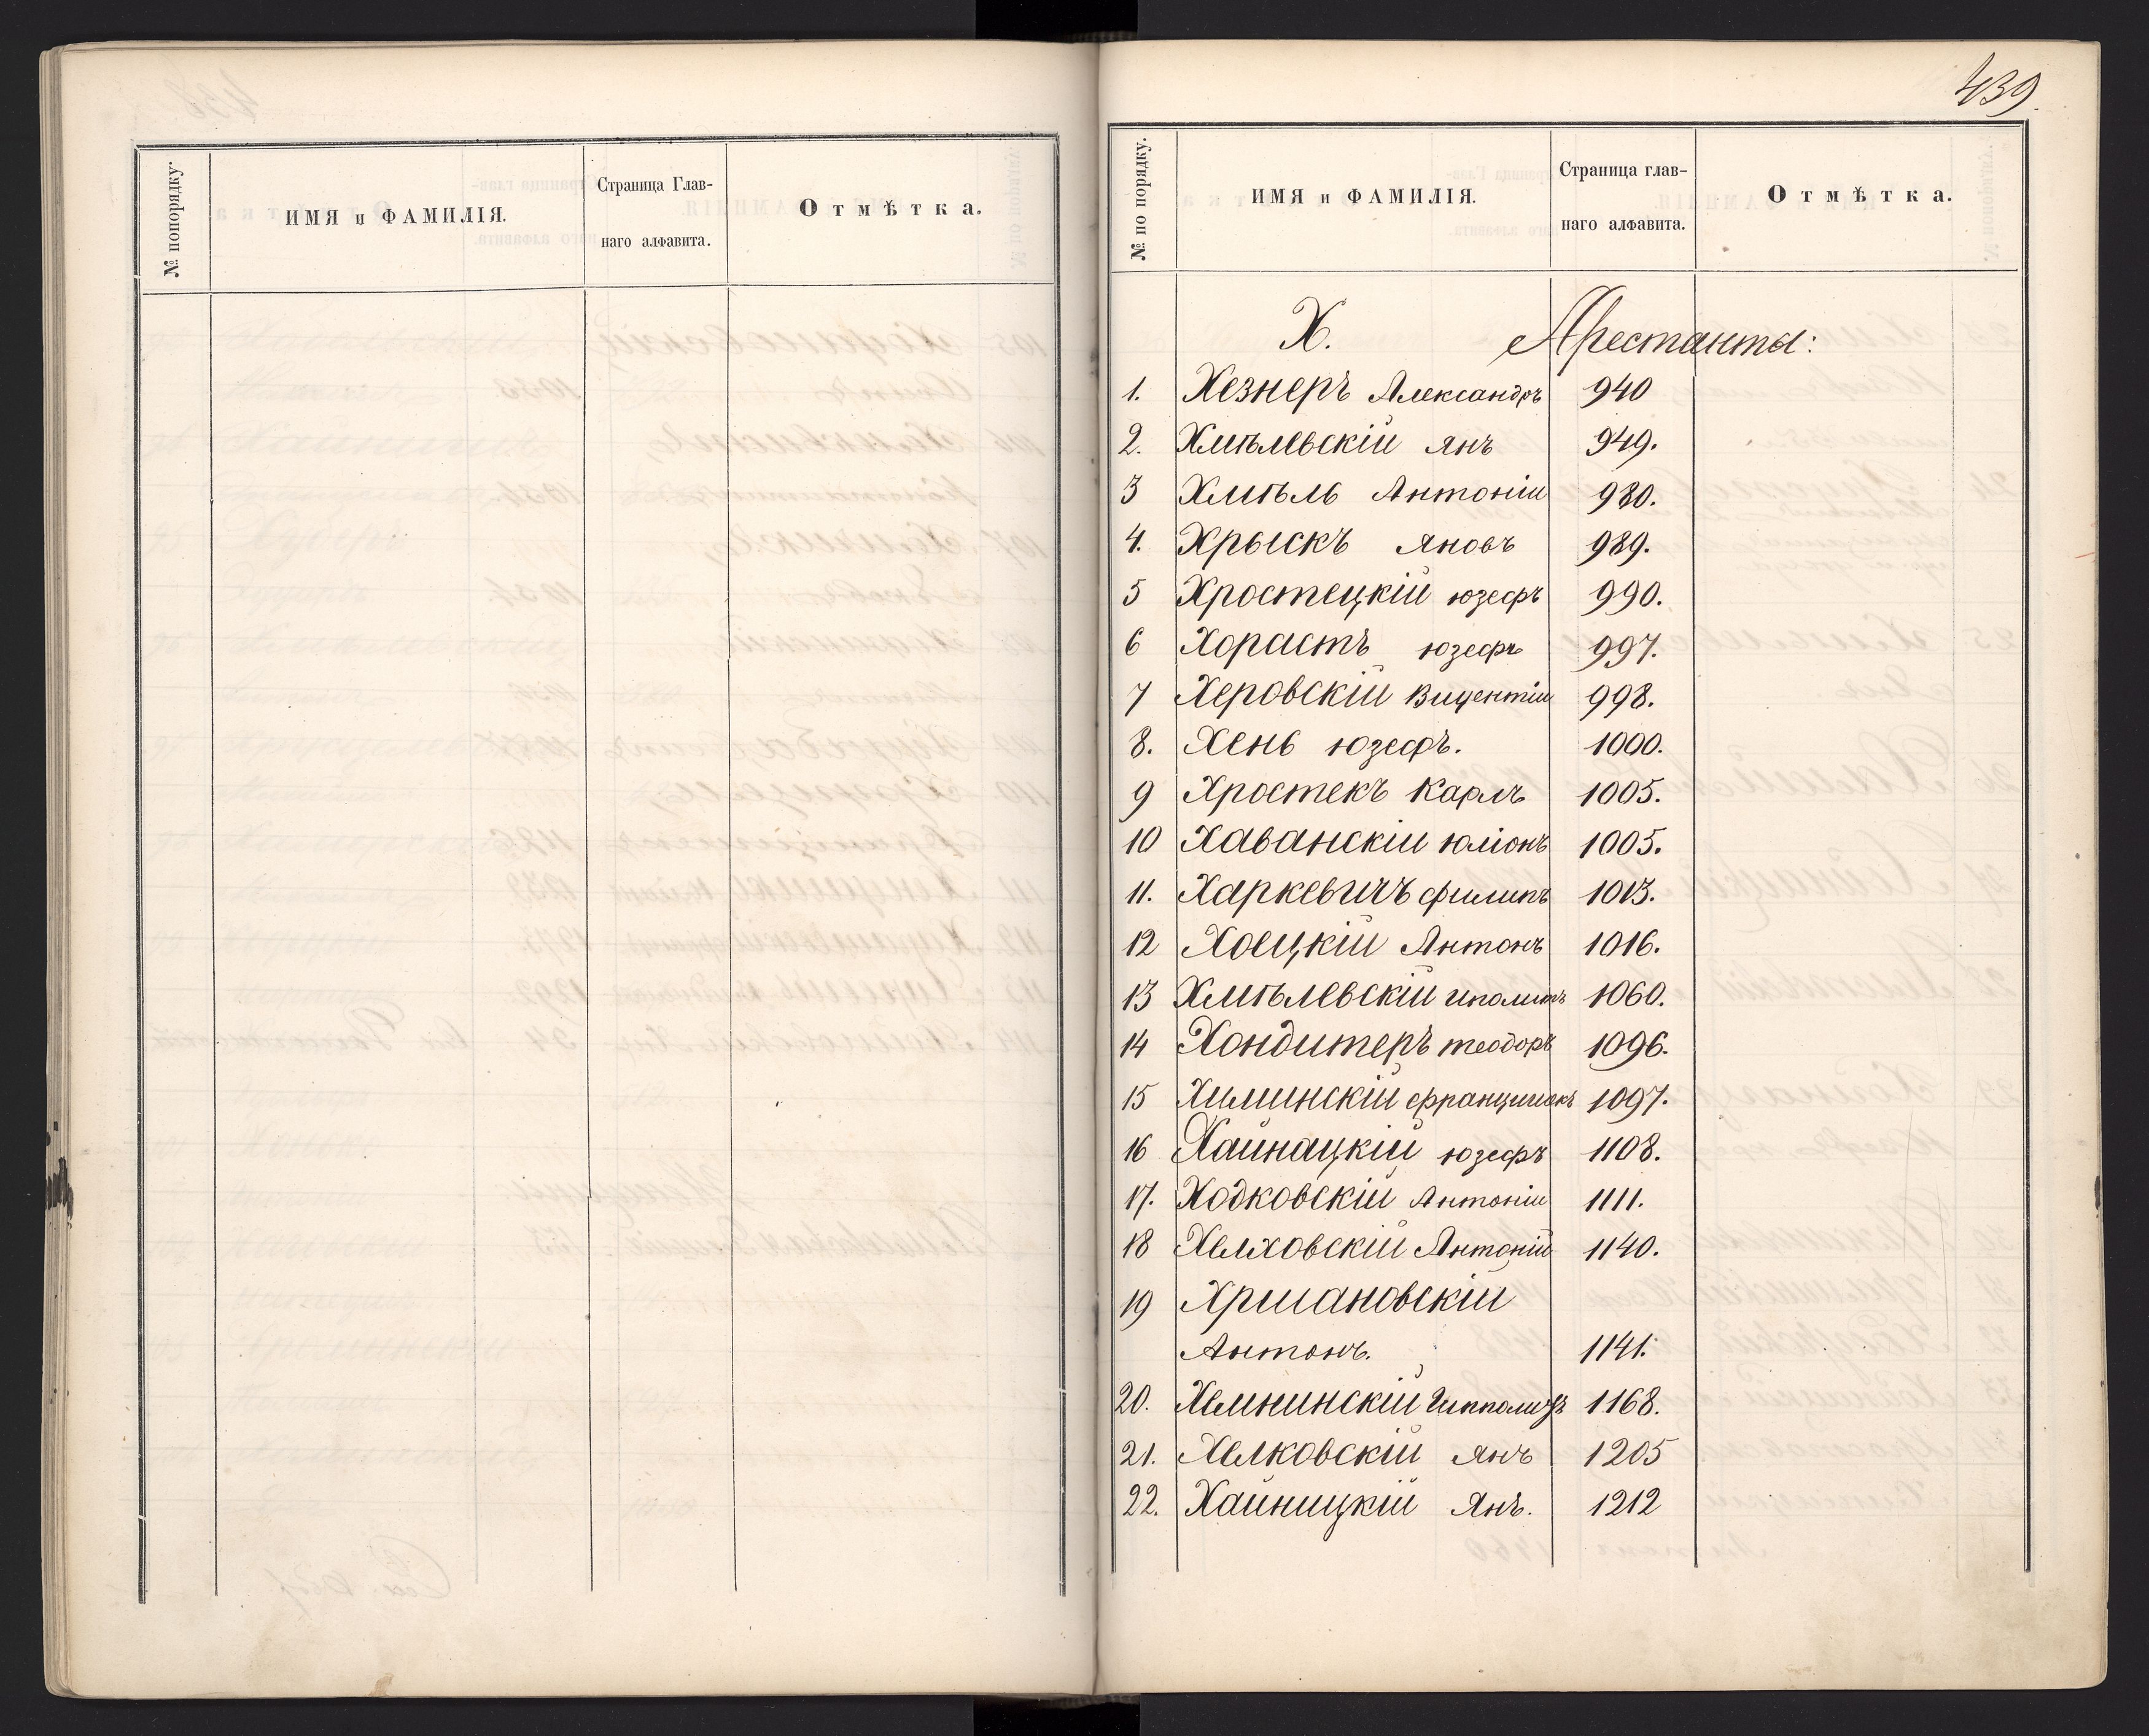 № попорядку.
ИМЯ и ФАМИЛІЯ.
Страница Глав-
наго алфавита.
Отмѣтка.
439.
№ по порядку.
ИМЯ и ФАМИЛІЯ.
Страница глав-
наго алфавита.
Отмѣтка.
Х. Арестанты:
1. Хезнеръ Александръ 940
2. Хмѣлевскій янъ 949.
3 Хмѣль Антоніи 980.
4. Хрыскъ яновъ 989.
5 Хростецкій юзефъ 990.
6 Хорастъ юзефъ 997.
7 Херовскій Вицентіи 998.
8. Хень юзефъ. 1000.
9 Хростекъ Карлъ 1005.
10 Хаванскіи юліонъ 1005.
11. Харкевичъ филипъ 1013.
12 Хоецкій Антонъ 1016.
13 Хмѣлевскіи иполитъ 1060.
14 Хондитеръ теодоръ 1096.
15 Хилинскій францишекъ 1097.
16 Хайнацкій юзефъ 1108.
17. Ходковскій Антоніи 1111.
18 Хелховскій Антоній 1140.
19 Хршановскій
Антонъ. 1141.
20. Хемнинскій Гипполитъ 1168.
21. Хелковскій янъ 1205
22. Хайницкій Янъ. 1212